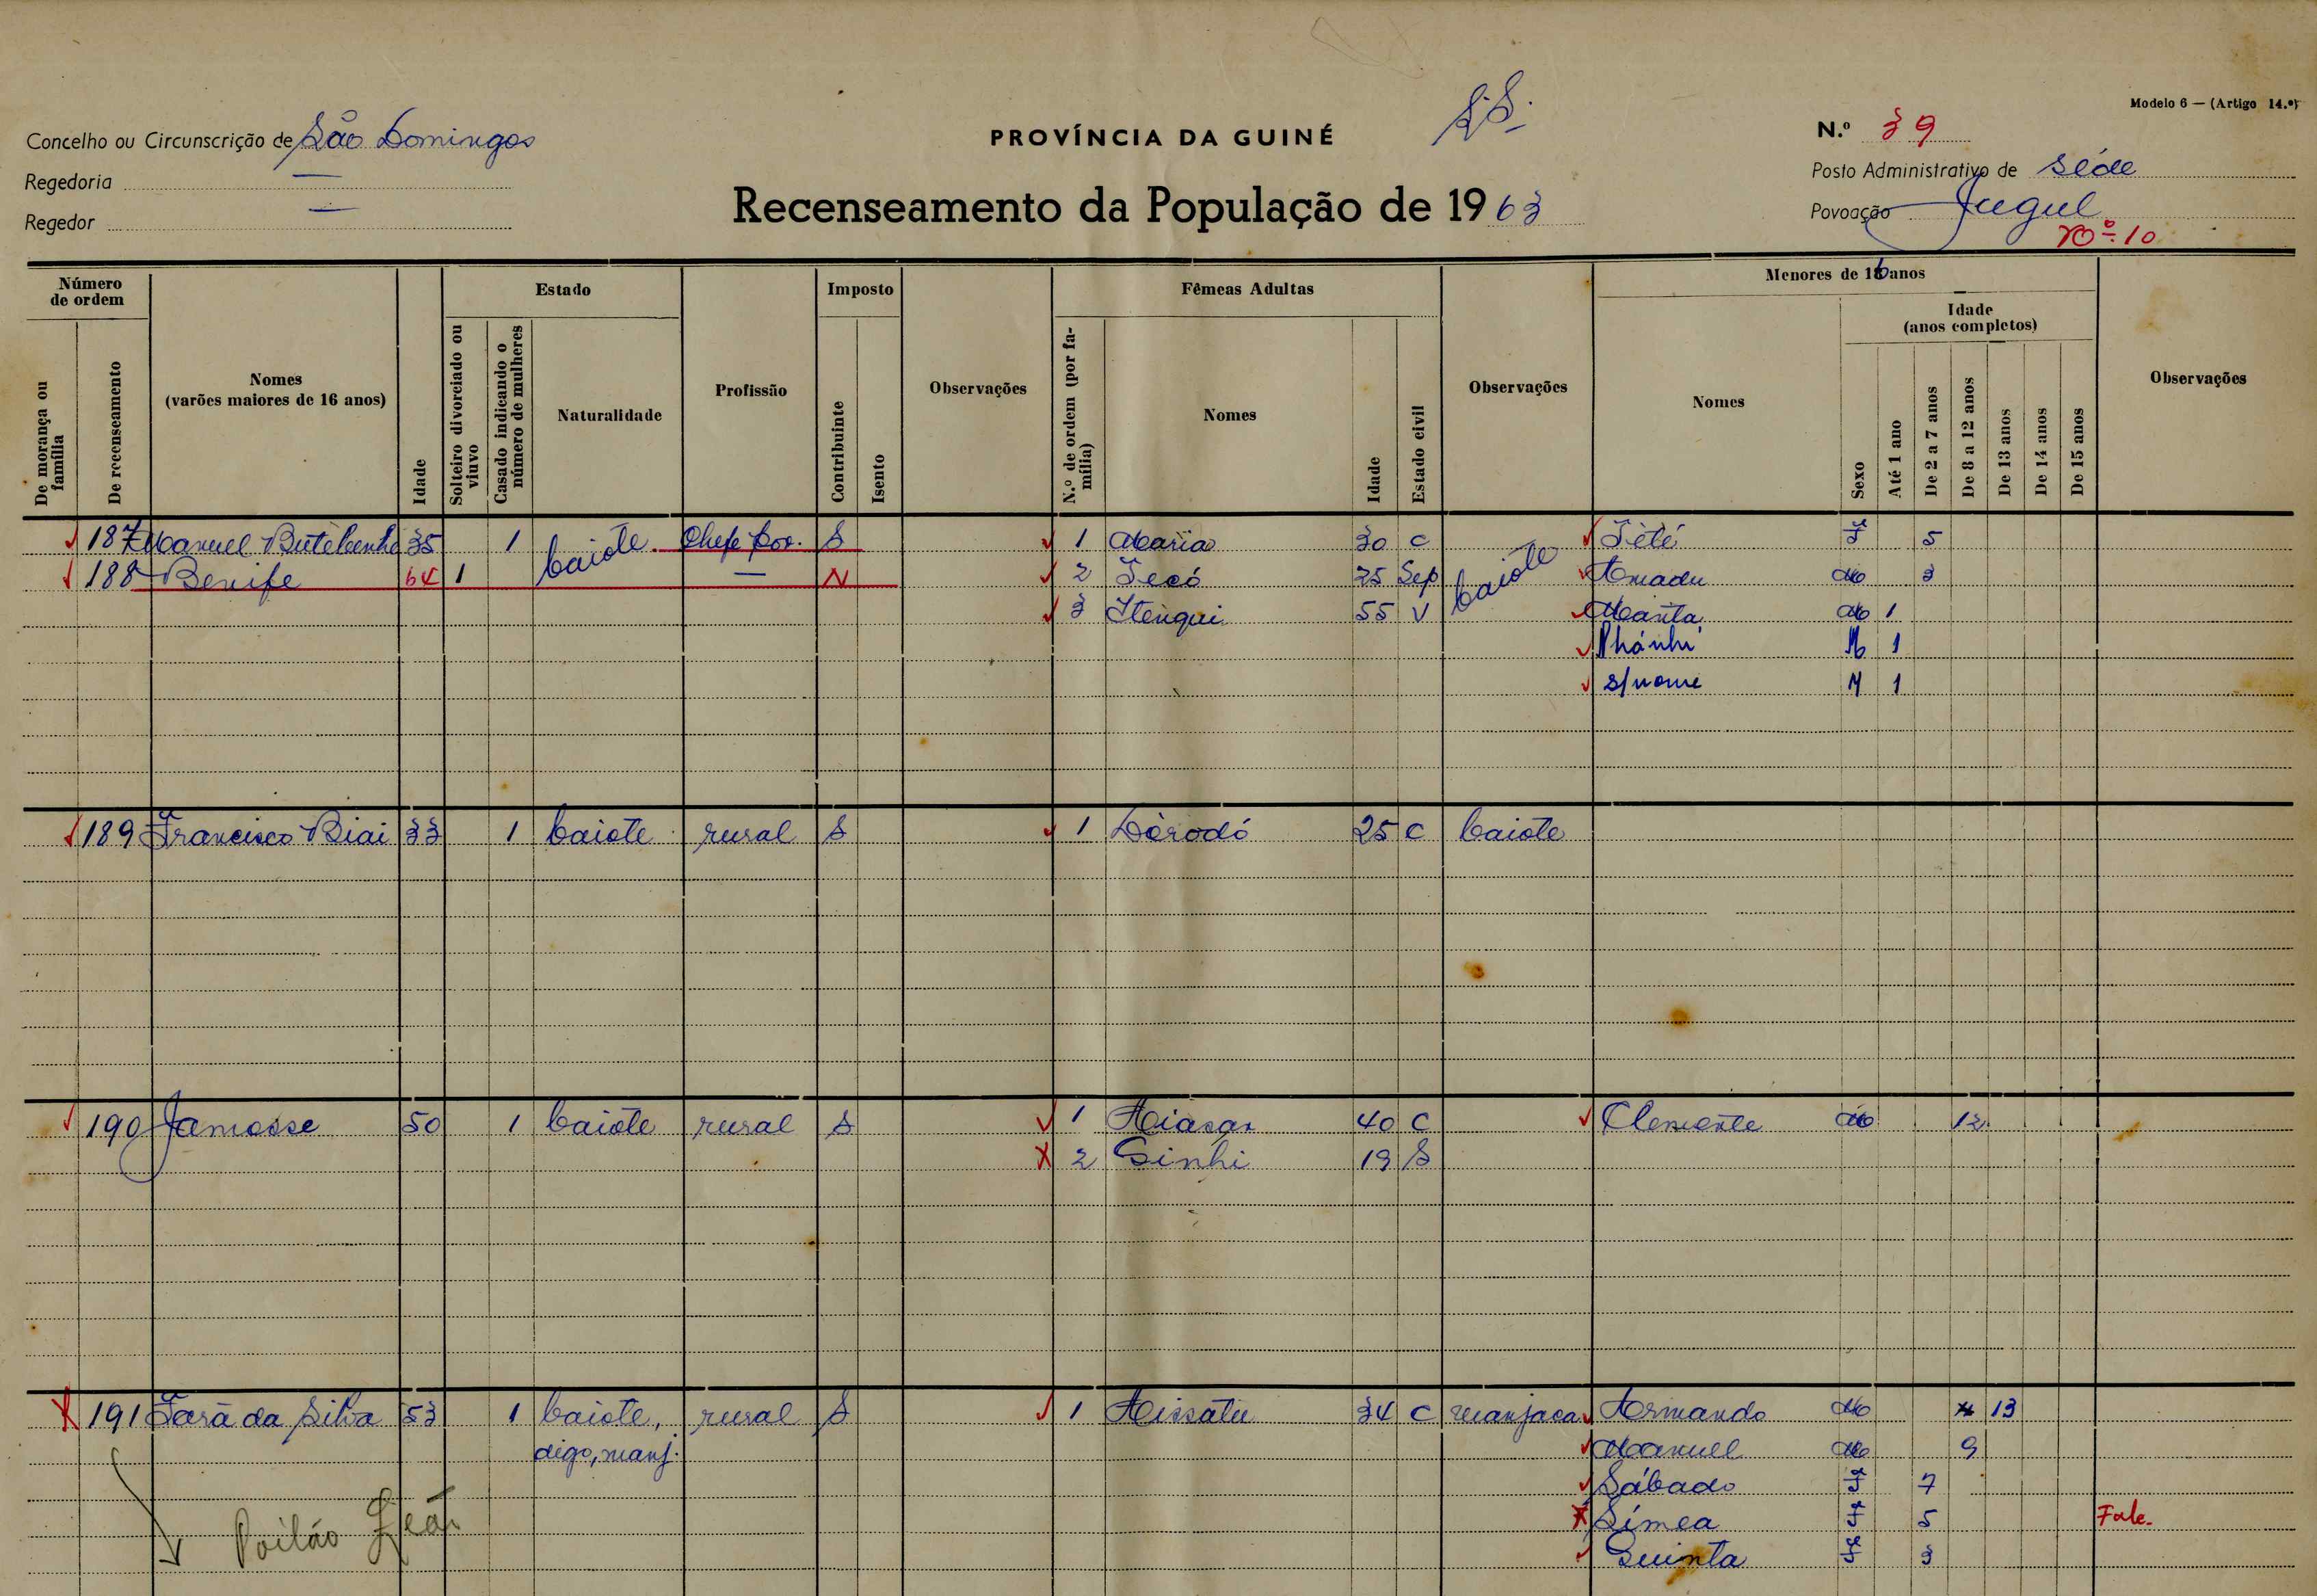 Modelo 6 — (Artigo 14.º)
Concelho ou Circunscrição de São Domingos
PROVÍNCIA DA GUINÉ
N.º 39
Regedoria —
Posto Administrativo de Séde
Regedor —
Recenseamento da População de 1963
Povoação Jugul
Nº 10
Número de ordem
Estado
Imposto
Fêmeas Adultas
Menores de 16 anos
Idade (anos completos)
De morança ou família
De recenseamento
Nomes (varões maiores de 16 anos)
Idade
Solteiro divorciado ou viuvo
Casado indicando o número de mulheres
Naturalidade
Profissão
Contribuinte
Isento
Observações
N.º de ordem (por família)
Nomes
Idade
Estado civil
Observações
Nomes
Sexo
Até 1 ano
De 2 a 7 anos
De 8 a 12 anos
De 13 anos
De 14 anos
De 15 anos
Observações
187 Manuel 35 1 baiote Chefe pov. S 1 Maria 30 C baiote Tété F 5
188 Benife 64 1 — N 2 Tecó 25 Sep Amadu M 3
3 Itengui 55 V M 1
Nhánhi M 1
s/nome M 1
189 Francisco Biai 33 1 baiote rural S 1 Dórodó 25 C baiote
190 Jamosse 50 1 baiote rural S 1 40 C Clemente M 12
2 Sinhi 19 S
191 Fará da Silva 53 1 baiote, rural S 1 Aissatu 34 C manjaca Armando M 13
digo, manj. Manuel M 9
Sábado F 7
Poilão Leão Símea F 5 Fale.
Quinta F 3